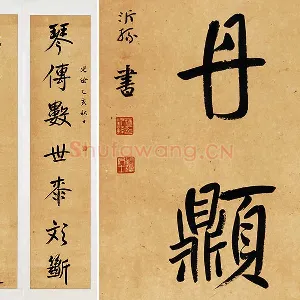 琴傳數世桼文斷
光緒乙亥秋日
沂孫書
丹
Shufawang.CN